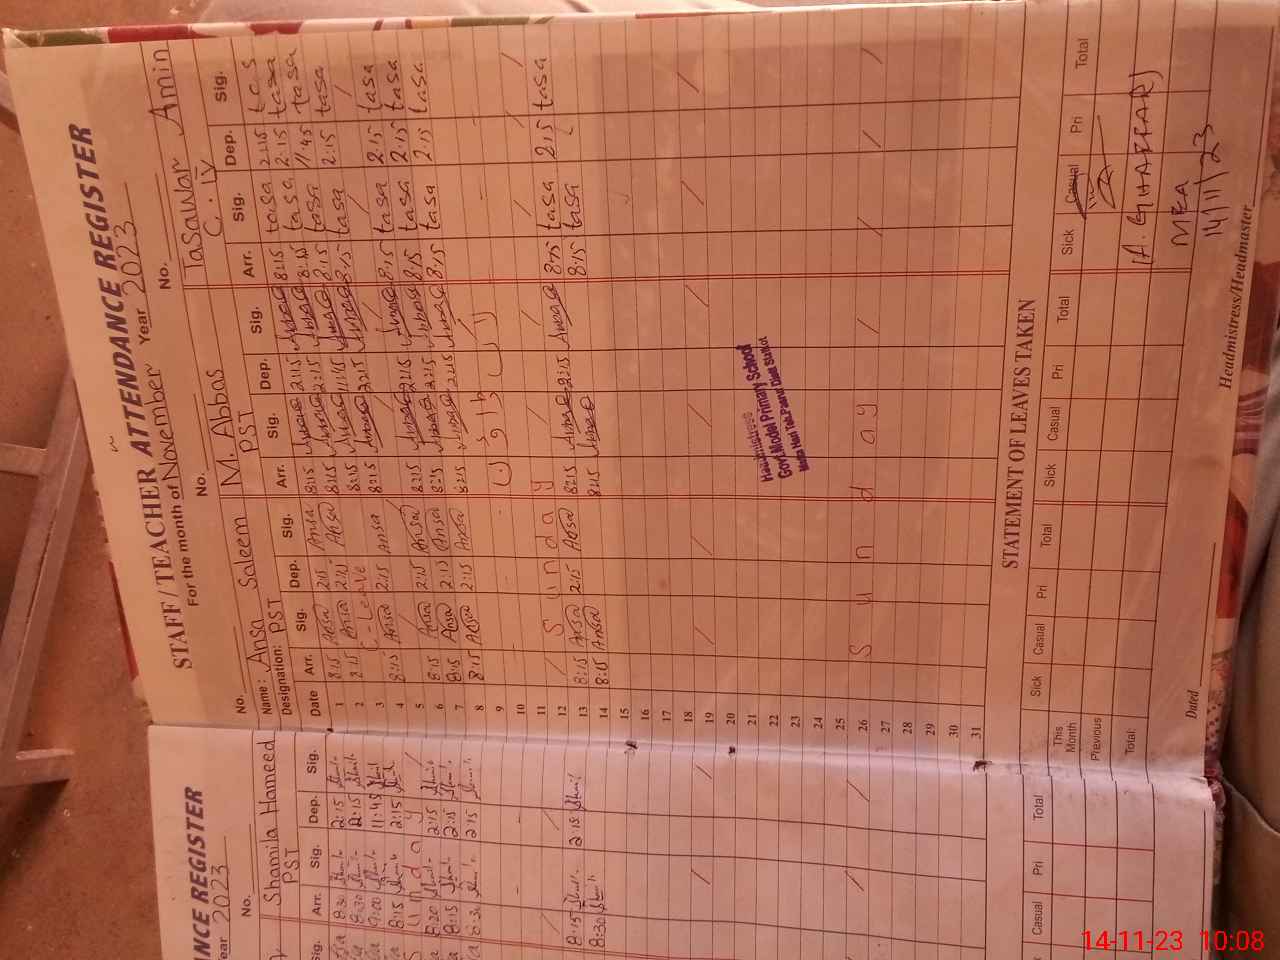 STAFF / TEACHER ATTENDANCE REGISTER
For the month of November Year 2023
No. No. No.
Name: Ansa Saleem M. Abbas Tasawar Amin
Designation: PST PST C.IV
Date Arr. Sig. Dep. Sig. Arr. Sig. Dep. Sig. Arr. Sig. Dep. Sig.
1 8:15 Ansa 2:15 Ansa 8:15 2:15 8:15 tasa 2:15 tas
2 8:15 Ansa 2:15 Ansa 8:15 2:15 8:15 tasa 2:15 tasa
3 C-Leave 8:15 11:45 8:15 tasa 11:45 tasa
4 8:15 Ansa 2:15 Ansa 8:15 2:15 8:15 tasa 2:15 tasa
5
6 8:15 Ansa 2:15 Ansa 8:15 2:15 8:15 tasa 2:15 tasa
7 8:15 Ansa 2:15 Ansa 8:15 2:15 8:15 tasa 2:15 tasa
8 8:15 Ansa 2:15 Ansa 8:15 2:15 8:15 tasa 2:15 tasa
9
10
11
12 Sunday
13 8:15 Ansa 2:15 Ansa 8:15 2:15 8:15 tasa 2:15 tasa
14 8:15 Ansa 8:15 8:15 tasa
15
16
17
18
19
20
21
22
23
24
25
26 Sunday
27
28
29
30
31
Headmistress
Govt Model Primary School
STATEMENT OF LEAVES TAKEN
Sick Casual Pri Total Sick Casual Pri Total Sick Casual Pri Total
This Month
Previous
Total:
A. GHAFFAR
MEA
14/11/23
Dated Headmistress/Headmaster
ANCE REGISTER
ear 2023
No.
Shamila Hameed
PST
Sig. Arr. Sig. Dep. Sig.
8:30 2:15
8:30 2:15
9:00 11:45
8:15 2:15
Sunday
8:20 2:15
8:15 2:15
8:30 2:15
8:15 2:15
8:30
Casual Pri Total
14-11-23 10:08